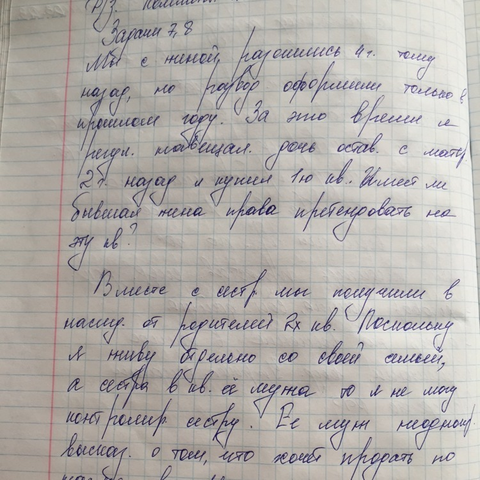 Р/з
Задачи 7,8
Мы с женой разошлись 4г. тому
назад, но развод оформили только в
прошлом году. За это время я
регул. навещал. дочь остав. с матер
2г. назад я купил 1ю кв. Имеет ли
бывшая жена права претендовать на
эту кв?
Вместе с сестр мы получили в
наслед. от родителей 2х кв. Поскольку
я живу отдельно со своей семьей,
а сестра в кв. её мужа то я не могу
контролир. сестру. Её муж неоднокр
выказ. о том, что хочет продать по